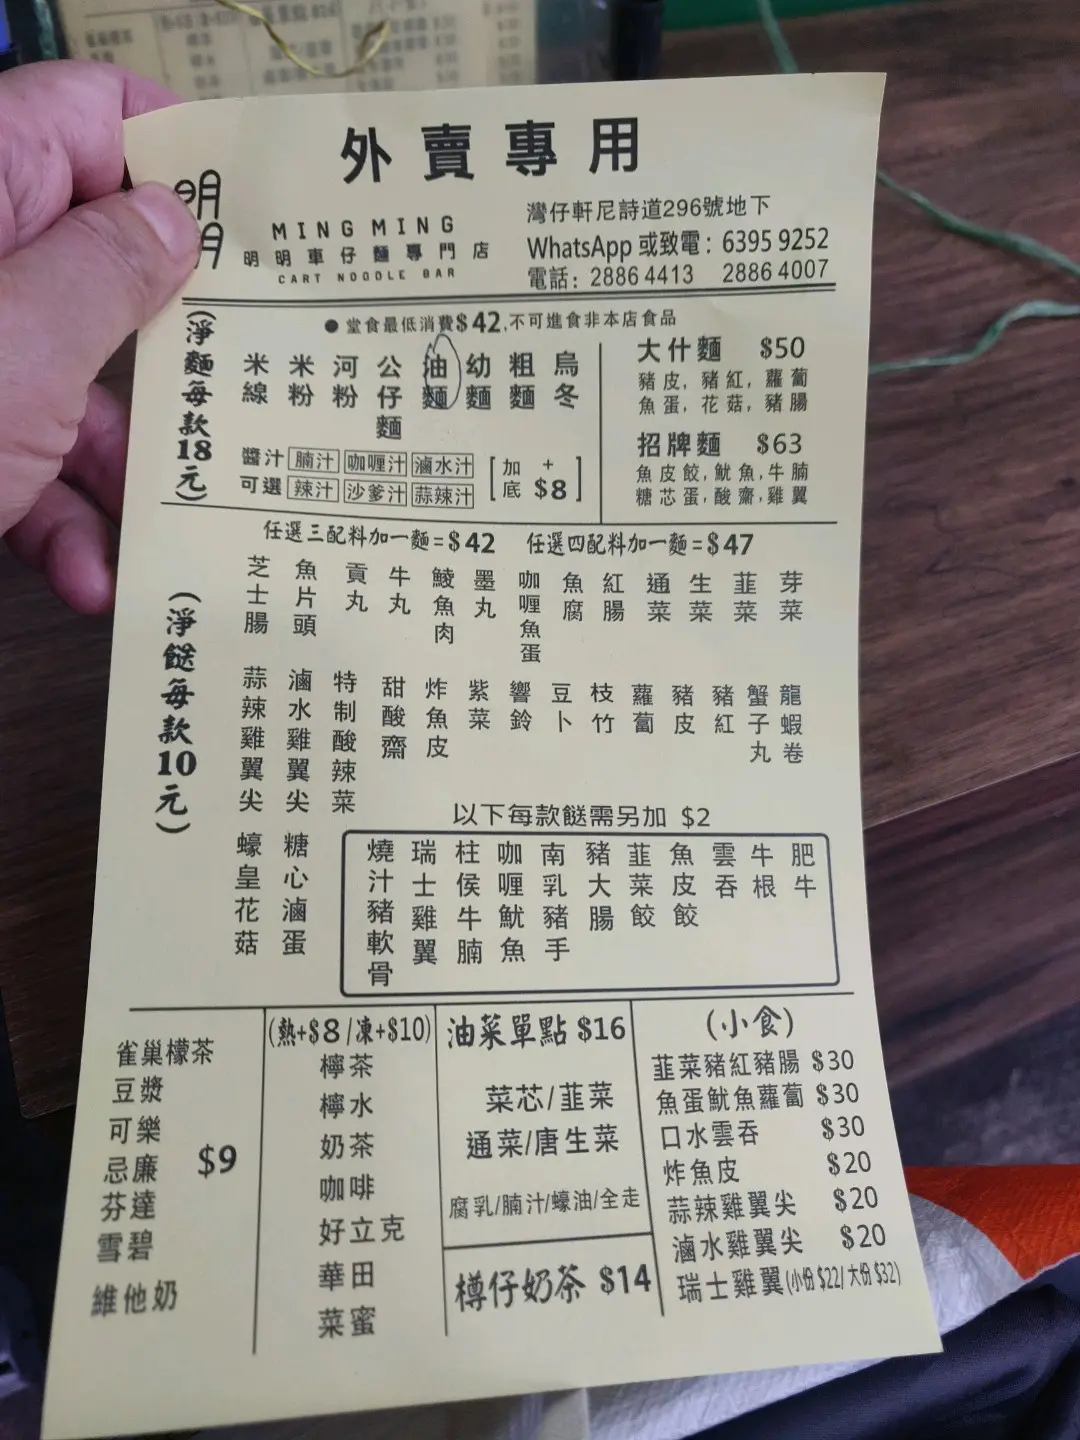 外賣專用
明明
MING MING
明明車仔麵專門店
CART NOODLE BAR
灣仔軒尼詩道296號地下
WhatsApp 或致電：6395 9252
電話：2886 4413 2886 4007
(淨麵每款18元)
● 堂食最低消費$42,不可進食非本店食品
米線
米粉
河粉
公仔麵
油麵
幼麵
粗麵
烏冬
醬汁可選
腩汁 咖喱汁 滷水汁
辣汁 沙爹汁 蒜辣汁
[加底 +$8]
大什麵 $50
豬皮, 豬紅, 蘿蔔
魚蛋, 花菇, 豬腸
招牌麵 $63
魚皮餃,魷魚,牛腩
糖芯蛋,酸齋,雞翼
任選三配料加一麵=$42 任選四配料加一麵=$47
(淨餸每款10元)
芝士腸
魚片頭
貢丸
牛丸
鯪魚肉
墨丸
咖喱魚蛋
魚腐
紅腸
通菜
生菜
韮菜
芽菜
蒜辣雞翼尖
滷水雞翼尖
特制酸辣菜
甜酸齋
炸魚皮
紫菜
響鈴
豆卜
枝竹
蘿蔔
豬皮
豬紅
蟹子丸
龍蝦卷
蠔皇花菇
糖心滷蛋
以下每款餸需另加 $2
燒汁豬軟骨
瑞士雞翼
柱侯牛腩
咖喱魷魚
南乳豬手
豬大腸
韮菜餃
魚皮餃
雲吞
牛根
肥牛
雀巢檬茶
豆漿
可樂
忌廉 $9
芬達
雪碧
維他奶
(熱+$8/凍+$10)
檸茶
檸水
奶茶
咖啡
好立克
華田
菜蜜
油菜單點 $16
菜芯/韮菜
通菜/唐生菜
腐乳/腩汁/蠔油/全走
樽仔奶茶 $14
(小食)
韮菜豬紅豬腸 $30
魚蛋魷魚蘿蔔 $30
口水雲吞 $30
炸魚皮 $20
蒜辣雞翼尖 $20
滷水雞翼尖 $20
瑞士雞翼(小份$22/大份$32)